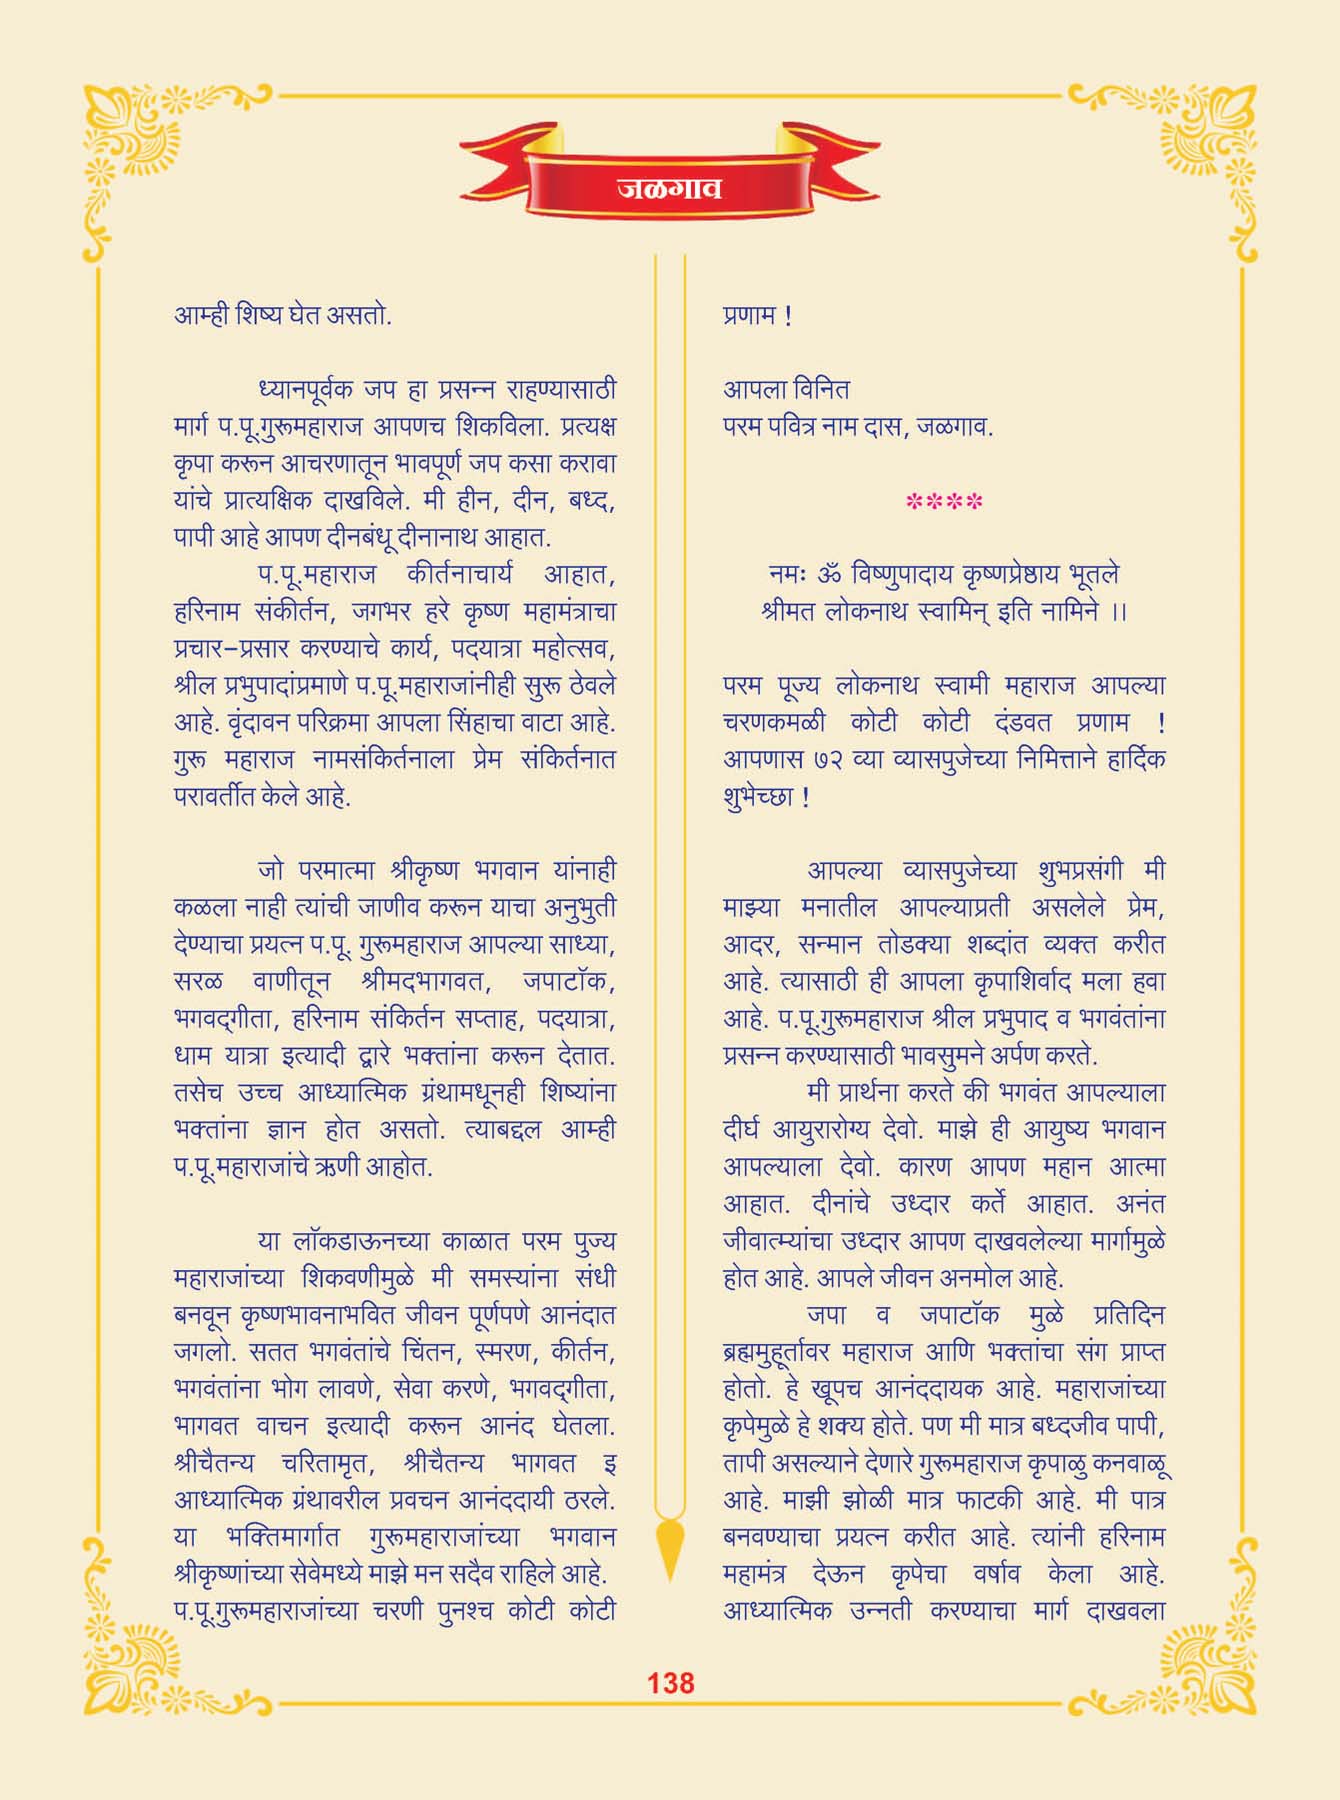 जळगाव
आम्ही शिष्य घेत असतो.
ध्यानपूर्वक जप हा प्रसन्न राहण्यासाठी
मार्ग प.पू.गुरूमहाराज आपणच शिकविला. प्रत्यक्ष
कृपा करून आचरणातून भावपूर्ण जप कसा करावा
यांचे प्रात्यक्षिक दाखविले. मी हीन, दीन, बध्द,
पापी आहे आपण दीनबंधू दीनानाथ आहात.
प.पू.महाराज कीर्तनाचार्य आहात,
हरिनाम संकीर्तन, जगभर हरे कृष्ण महामंत्राचा
प्रचार–प्रसार करण्याचे कार्य, पदयात्रा महोत्सव,
श्रील प्रभुपादांप्रमाणे प.पू.महाराजांनीही सुरू ठेवले
आहे. वृंदावन परिक्रमा आपला सिंहाचा वाटा आहे.
गुरू महाराज नामसंकिर्तनाला प्रेम संकिर्तनात
परावर्तीत केले आहे.
जो परमात्मा श्रीकृष्ण भगवान यांनाही
कळला नाही त्यांची जाणीव करून याचा अनुभुती
देण्याचा प्रयत्न प.पू. गुरूमहाराज आपल्या साध्या,
सरळ वाणीतून श्रीमदभागवत, जपाटॉक,
भगवद्‌गीता, हरिनाम संकिर्तन सप्ताह, पदयात्रा,
धाम यात्रा इत्यादी द्वारे भक्तांना करून देतात.
तसेच उच्च आध्यात्मिक ग्रंथामधूनही शिष्यांना
भक्तांना ज्ञान होत असतो. त्याबद्दल आम्ही
प.पू.महाराजांचे ऋणी आहोत.
या लॉकडाऊनच्या काळात परम पुज्य
महाराजांच्या शिकवणीमुळे मी समस्यांना संधी
बनवून कृष्णभावनाभवित जीवन पूर्णपणे आनंदात
जगलो. सतत भगवंतांचे चिंतन, स्मरण, कीर्तन,
भगवंतांना भोग लावणे, सेवा करणे, भगवद्‌गीता,
भागवत वाचन इत्यादी करून आनंद घेतला.
श्रीचैतन्य चरितामृत, श्रीचैतन्य भागवत इ
आध्यात्मिक ग्रंथावरील प्रवचन आनंददायी ठरले.
या भक्तिमार्गात गुरूमहाराजांच्या भगवान
श्रीकृष्णांच्या सेवेमध्ये माझे मन सदैव राहिले आहे.
प.पू.गुरूमहाराजांच्या चरणी पुनश्च कोटी कोटी
प्रणाम !
आपला विनित
परम पवित्र नाम दास, जळगाव.
****
नमः ॐ विष्णुपादाय कृष्णप्रेष्ठाय भूतले
श्रीमत लोकनाथ स्वामिन् इति नामिने ।।
परम पूज्य लोकनाथ स्वामी महाराज आपल्या
चरणकमळी कोटी कोटी दंडवत प्रणाम !
आपणास ७२ व्या व्यासपुजेच्या निमित्ताने हार्दिक
शुभेच्छा !
आपल्या व्यासपुजेच्या शुभप्रसंगी मी
माझ्या मनातील आपल्याप्रती असलेले प्रेम,
आदर, सन्मान तोडक्या शब्दांत व्यक्त करीत
आहे. त्यासाठी ही आपला कृपाशिर्वाद मला हवा
आहे. प.पू.गुरूमहाराज श्रील प्रभुपाद व भगवंतांना
प्रसन्न करण्यासाठी भावसुमने अर्पण करते.
मी प्रार्थना करते की भगवंत आपल्याला
दीर्घ आयुरारोग्य देवो. माझे ही आयुष्य भगवान
आपल्याला देवो. कारण आपण महान आत्मा
आहात. दीनांचे उध्दार कर्ते आहात. अनंत
जीवात्म्यांचा उध्दार आपण दाखवलेल्या मार्गामुळे
होत आहे. आपले जीवन अनमोल आहे.
जपा व जपाटॉक मुळे प्रतिदिन
ब्रह्ममुहूर्तावर महाराज आणि भक्तांचा संग प्राप्त
होतो. हे खूपच आनंददायक आहे. महाराजांच्या
कृपेमुळे हे शक्य होते. पण मी मात्र बध्दजीव पापी,
तापी असल्याने देणारे गुरूमहाराज कृपाळु कनवाळू
आहे. माझी झोळी मात्र फाटकी आहे. मी पात्र
बनवण्याचा प्रयत्न करीत आहे. त्यांनी हरिनाम
महामंत्र देऊन कृपेचा वर्षाव केला आहे.
आध्यात्मिक उन्नती करण्याचा मार्ग दाखवला
138